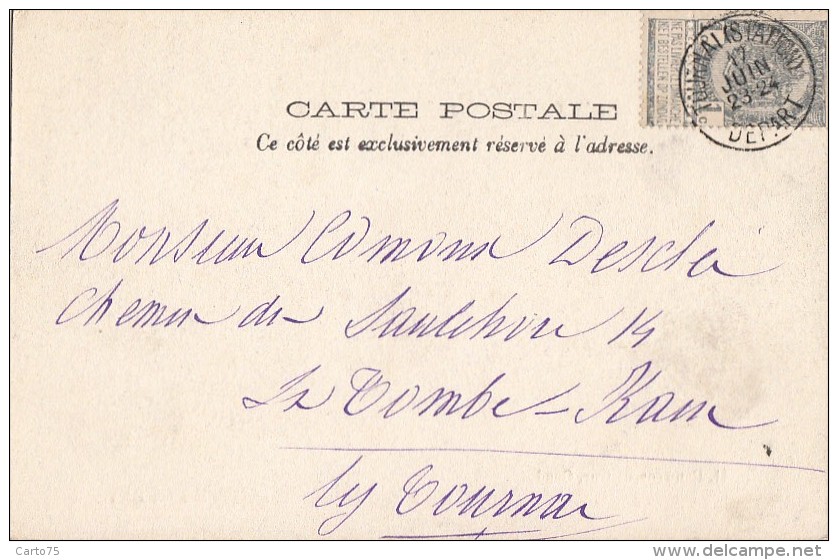 NE PAS LIVRER LE DIMANCHE
NIET BESTELLEN OP ZONDAG
TOURNAI (STATION)
17
JUIN
23-24
DÉPART
CARTE POSTALE
Ce côté est exclusivement réservé à l'adresse.
Monsieur Edmond
Chemin du Saulchoir 14
La Tombe-Kain
lez Tournai
Carto75
www.delcampe.net